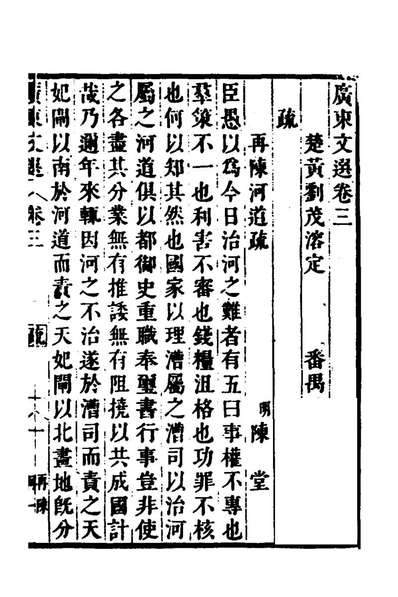 廣東文選卷三
楚黃劉茂溶定 番禺
疏
再陳河道疏 明陳堂
臣愚以為今日治河之難者有五曰事權不專也
羣策不一也利害不審也錢糧沮格也功罪不核
也何以知其然也國家以理漕屬之漕司以治河
屬之河道俱以都御史重職奉璽書行事豈非使
之各盡其分業無有推諉無有阻撓以共成國計
哉乃邇年來輒因河之不治遂於漕司而責之天
妃閘以南於河道而責之天妃閘以北畫地旣分
廣東文選 卷三 疏 再陳